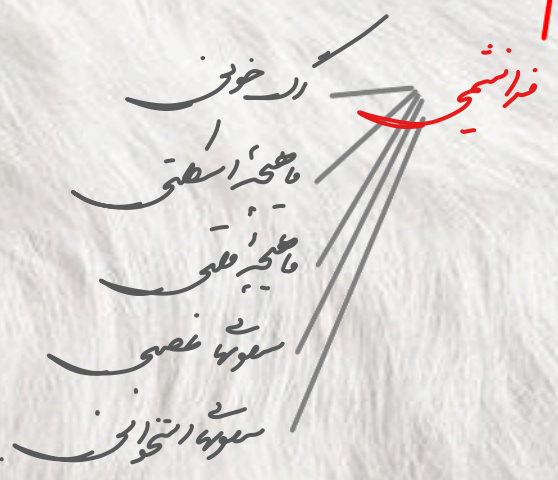 فراتشمی
رگ خونی
ماهیچه اسکلتی
ماهیچه قلبی
سلولهای عصبی
سلولهای استخوانی